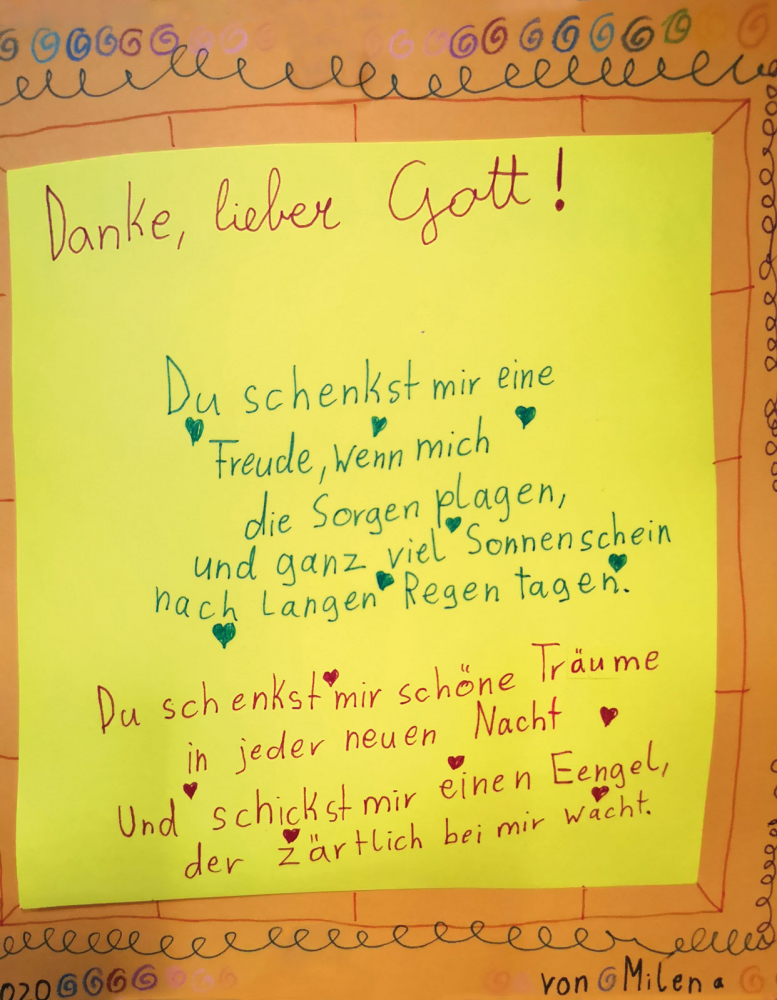 Danke, lieber Gott!
Du schenkst mir eine
Freude, wenn mich
die Sorgen plagen,
und ganz viel Sonnenschein
nach Langen Regen tagen.
Du schenkst mir schöne Träume
in jeder neuen Nacht
Und schickst mir einen Eengel,
der zärtlich bei mir wacht.
020
von Milena